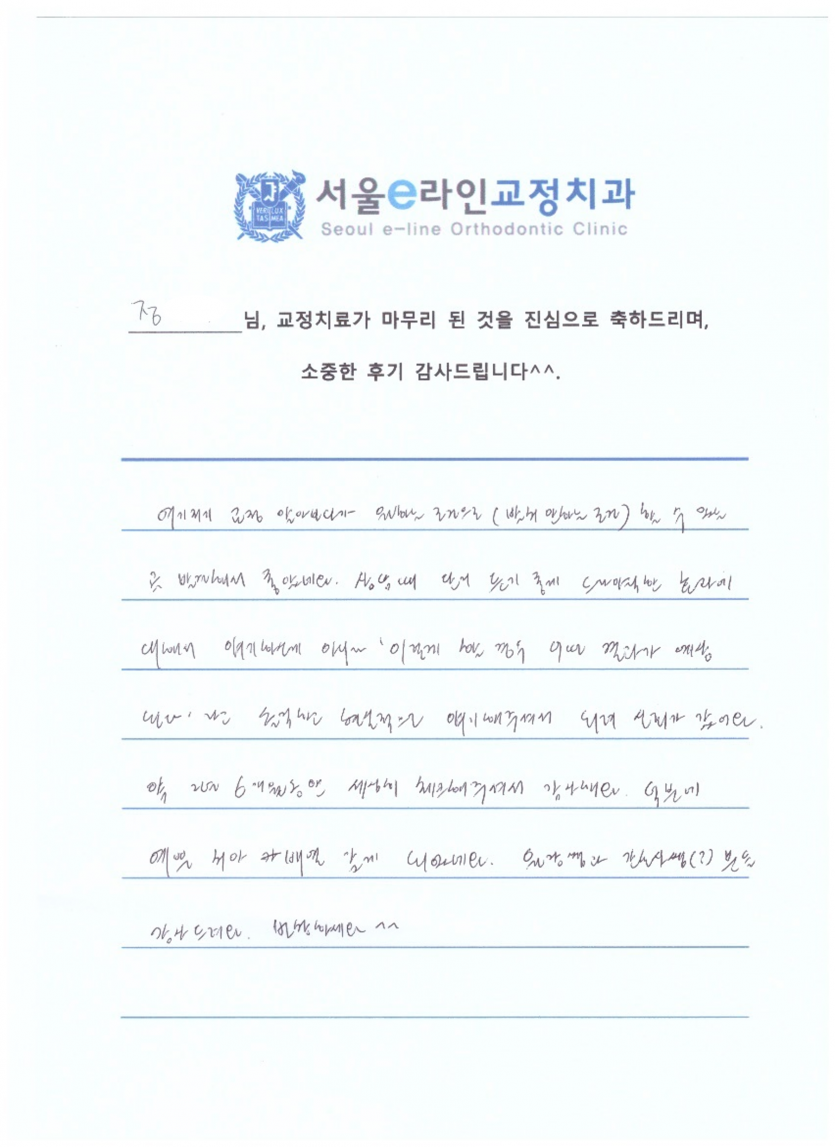 서울e라인교정치과
Seoul e-line Orthodontic Clinic
정 님, 교정치료가 마무리 된 것을 진심으로 축하드리며,
소중한 후기 감사드립니다^^.
여기저기 교정 알아보다가 원하는 조건으로 (발치 안하는 조건) 할 수 있는
곳 발견해서 좋았네요. 상담 때 단지 듣기 좋게 드라마틱한 효과에
대해서 얘기하는게 아니라 '이렇게 하면 경우 이런 결과가 예상
된다' 라고 솔직하고 현실적으로 얘기해주셔서 되려 신뢰가 갔어요.
약 2년 6개월동안 세심히 체크해주셔서 감사해요. 덕분에
예쁜 치아 배열 갖게 되었네요. 원장쌤과 간호사쌤(?) 분들
감사드려요. 번창하세요 ^^